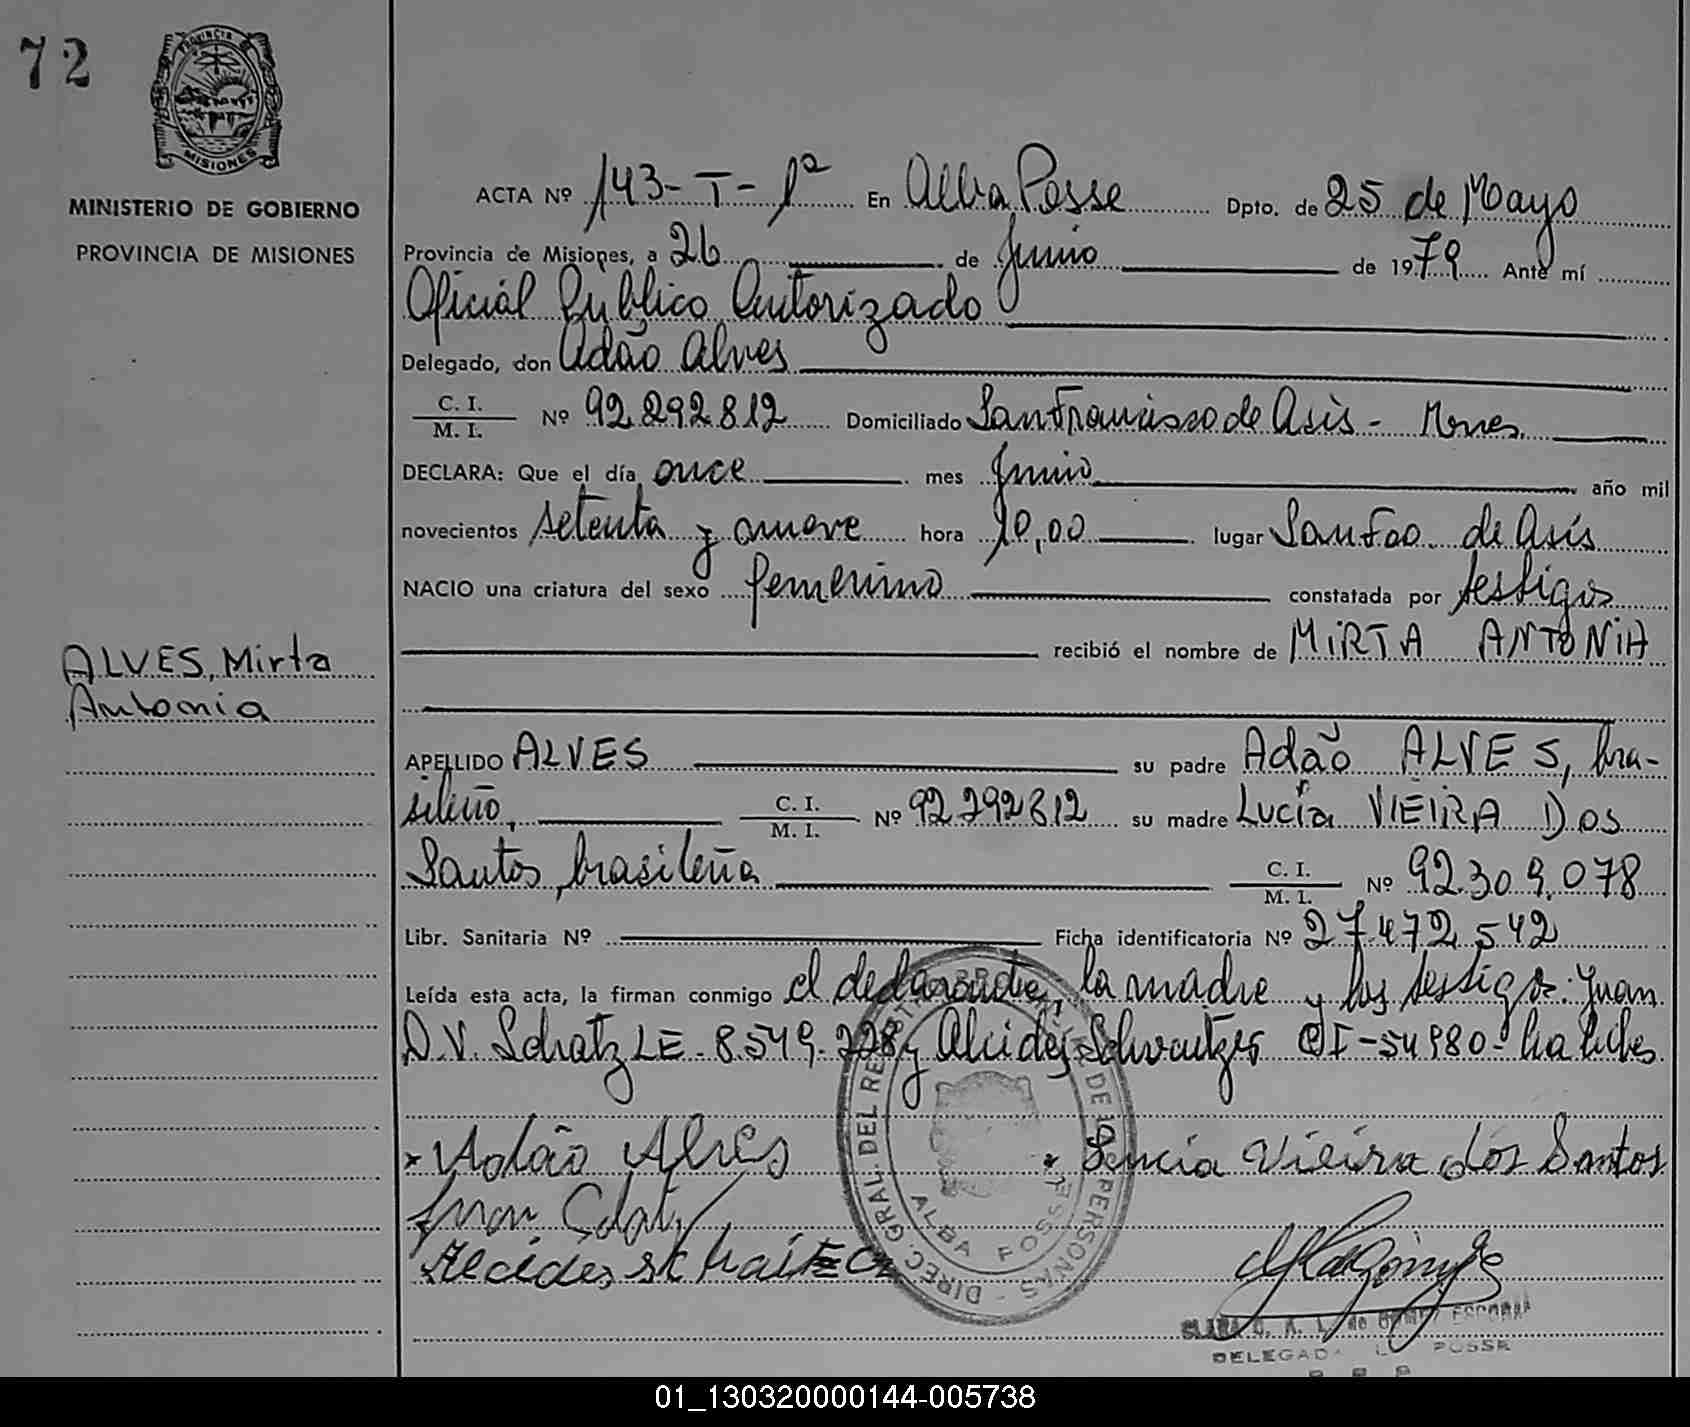 72
PROVINCIA DE
MISIONES
MINISTERIO DE GOBIERNO
PROVINCIA DE MISIONES
ALVES, Mirta
Antonia
ACTA Nº 143-T-1ª En Alba Posse Dpto. de 25 de Mayo
Provincia de Misiones, a 26 de Junio de 1979 Ante mí
Oficial Público Autorizado
Delegado, don Adão Alves
C. I.
M. I. Nº 92.292.812 Domiciliado San Francisco de Asis - Mnes.
DECLARA: Que el día once mes Junio año mil
novecientos setenta y nueve hora 10,00 lugar San Fco. de Asís
NACIO una criatura del sexo femenino constatada por testigos
recibió el nombre de MIRTA ANTONIA
APELLIDO ALVES su padre Adão ALVES, bra-
sileño, C. I.
M. I. Nº 92.292.812 su madre Lucía VIEIRA Dos
Santos, brasileña C. I.
M. I. Nº 92.309.078
Libr. Sanitaria Nº Ficha identificatoria Nº 27.472.542
Leída esta acta, la firman conmigo el declarante, la madre y los testigos: Juan
D.V. Schatz LE - 8.549.228 y Alcides CI - 54980 -
Adão Alves
Vieira dos Santos
Juan
Alcides
DIREC. GRAL. DEL REGISTRO DE LAS PERSONAS
ALBA POSSE
DELEGADA POSSE
01_130320000144-005738